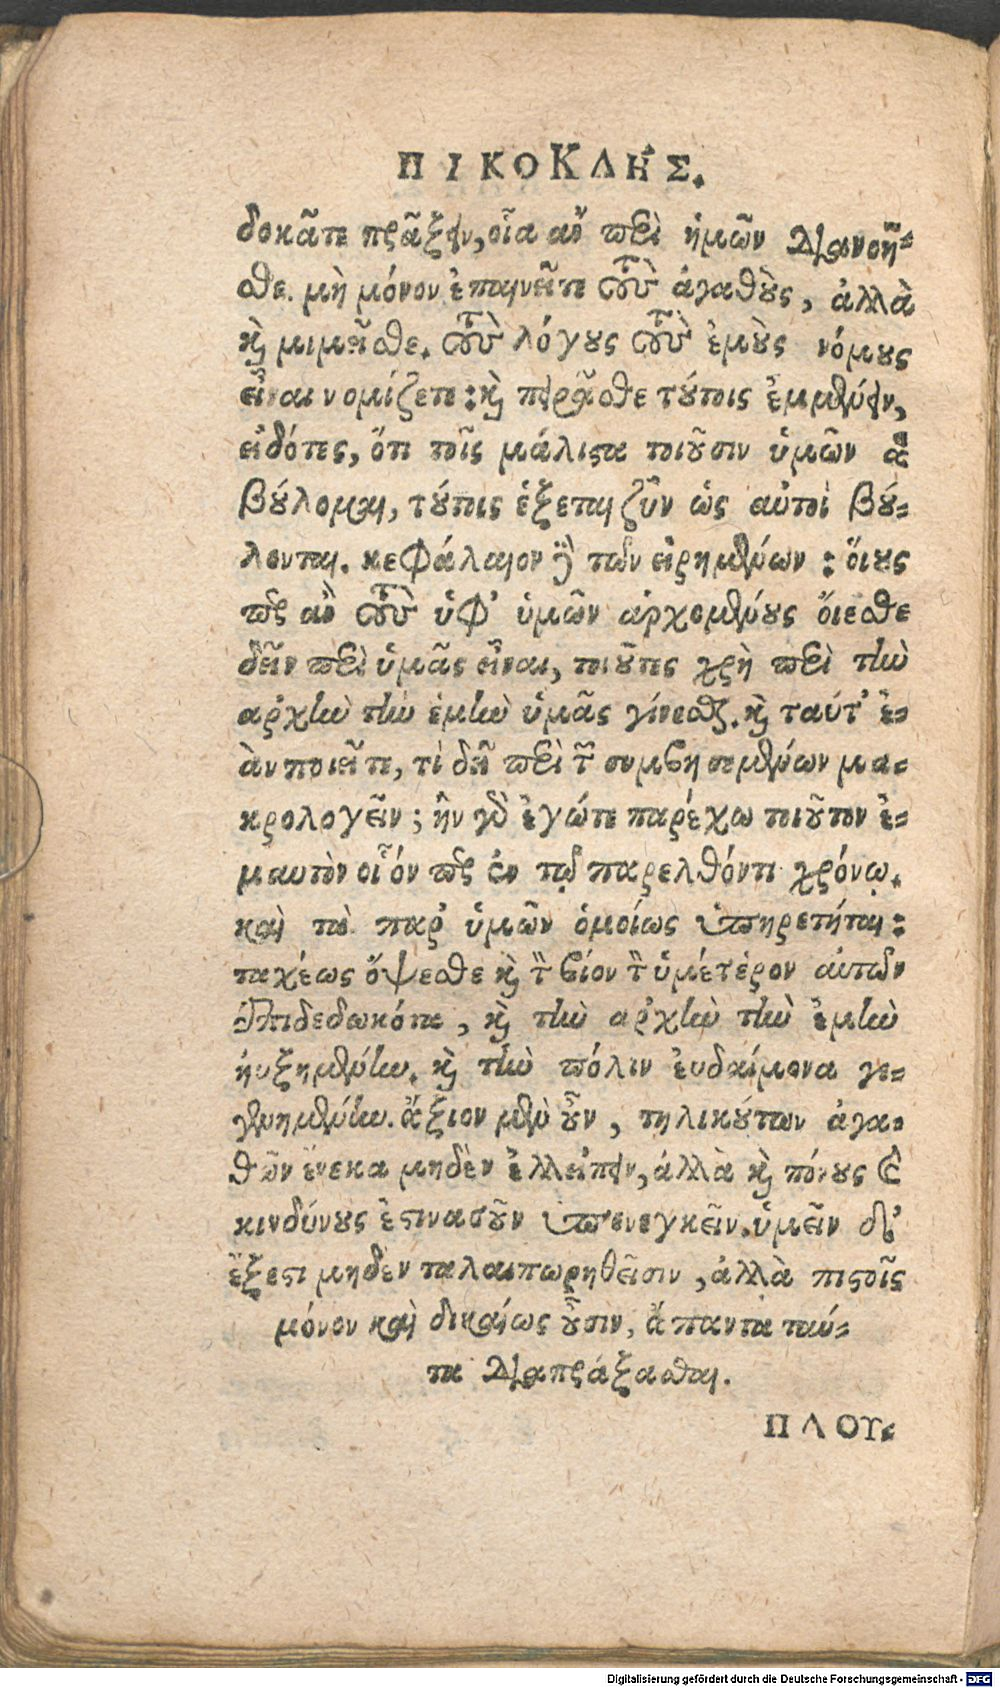 ΠΙΚΟΚΛΗΣ.
δοκᾶτε πράξειν, οἷα ἂν περὶ ἡμῶν διανοῆ-
σθε. μὴ μόνον ἐπαινεῖτε τοὺς ἀγαθοὺς, ἀλλὰ
καὶ μιμεῖσθε. τοὺς λόγους τοὺς ἐμοὺς νόμους
εἶναι νομίζετε: καὶ πειρᾶσθε τούτοις ἐμμένειν,
εἰδότες, ὅτι τοῖς μάλιστα ποιοῦσιν ὑμῶν ἃ
βούλομαι, τούτοις ἐξέσται ζῆν ὡς αὐτοὶ βού-
λονται. κεφάλαιον δὲ τῶν εἰρημένων: οἵους
πὲρ ἂν τοὺς ὑφ' ὑμῶν ἀρχομένους οἴεσθε
δεῖν περὶ ὑμᾶς εἶναι, τοιούτους χρὴ περὶ τὴν
ἀρχὴν τὴν ἐμὴν ὑμᾶς γίνεσθαι. καὶ ταύτ' ἐ-
ὰν ποιεῖτε, τί δεῖ περὶ τῶν συμβησομένων μα-
κρολογεῖν; ἢν γὰρ ἐγώτε παρέχω τοιοῦτον ἐ-
μαυτὸν οἷόν περ ἐν τῷ παρελθόντι χρόνῳ.
καὶ τὰ παρ' ὑμῶν ὁμοίως ὑπηρετῆται:
ταχέως ὄψεσθε καὶ τὸν βίον τὸν ὑμέτερον αὐτῶν
ἐπιδεδωκότα, καὶ τὴν ἀρχὴν τὴν ἐμὴν
ηὐξημένην. καὶ τὴν πόλιν εὐδαίμονα γε-
γενημένην. ἄξιον μὲν οὖν, τηλικούτων ἀγα-
θῶν ἕνεκα μηδὲν ἐλλείπειν, ἀλλὰ καὶ πόνους καὶ
κινδύνους ἑστινασοῦν ὑπενεγκεῖν. ὑμεῖν δ'
ἔξεστι μηδὲν ταλαιπωρηθεῖσιν, ἀλλὰ πιστοῖς
μόνον καὶ δικαίως οὖσιν, ἅπαντα ταύ-
τα διαπράξασθαι.
ΠΛΟΥ-
Digitalisierung gefördert durch die Deutsche Forschungsgemeinschaft - DFG